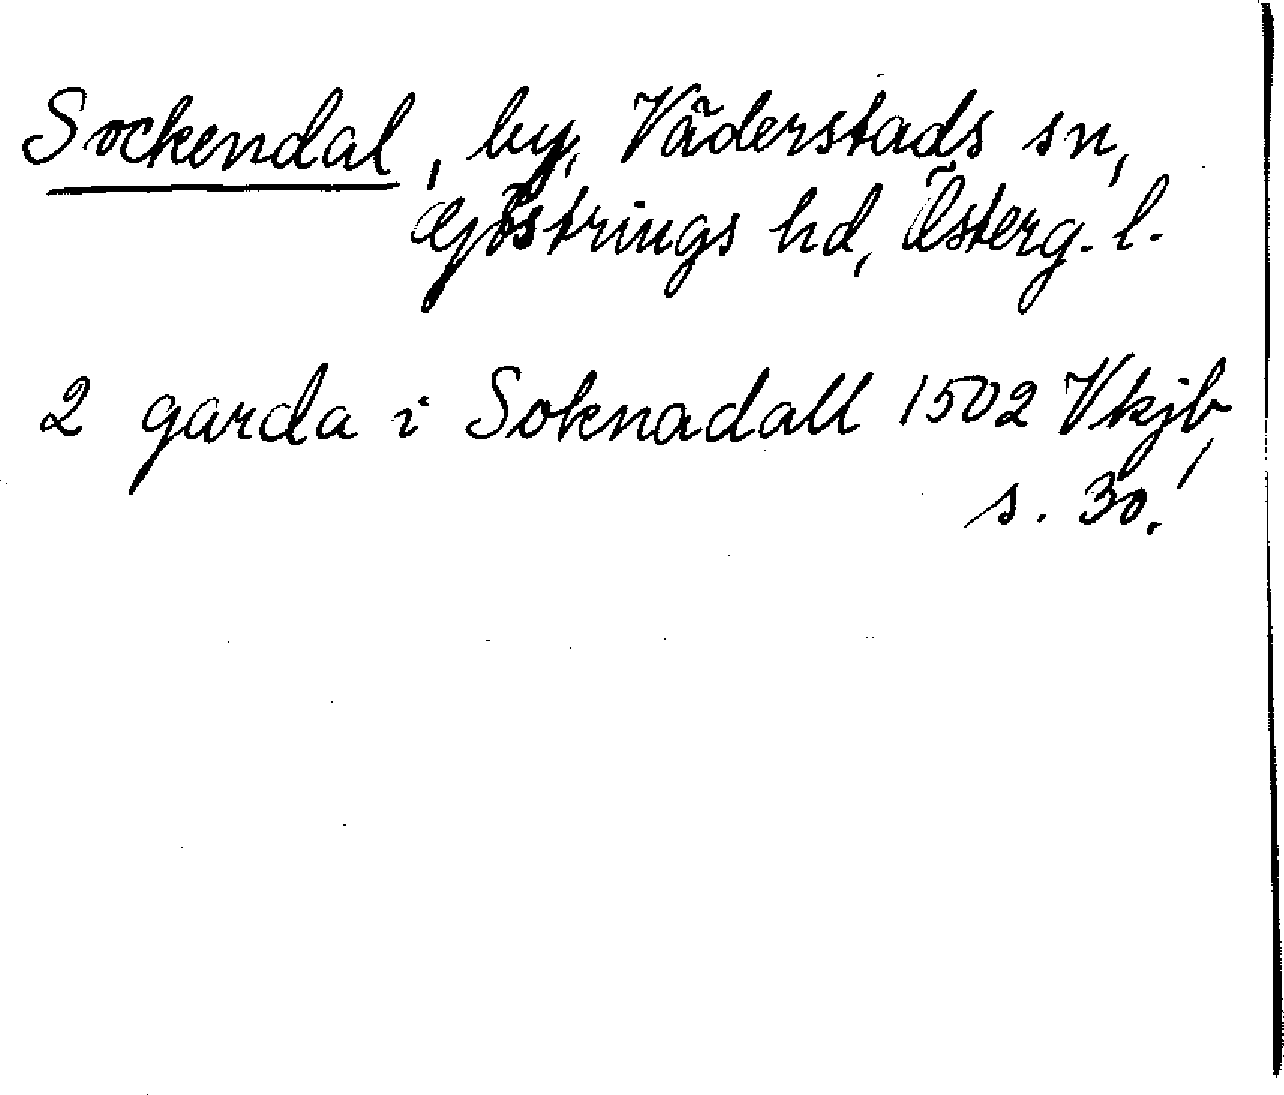 Sockendal, by, Väderstads sn,
Göstrings hd, Österg. l.
2 garda i Soknadall 1502 Vkjb,
s. 30.